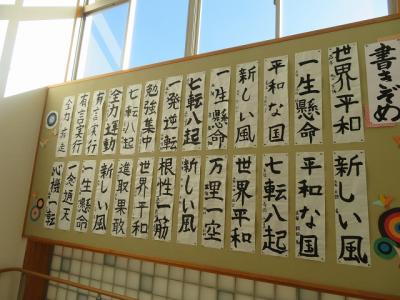 書きぞめ
世界平和
一生懸命
平和な国
新しい風
一生懸命
七転八起
一発逆転
勉強集中
七転八起
全力運動
有言実行
有言実行
全力疾走
新しい風
平和な国
七転八起
世界平和
万理一空
新しい風
根性一筋
世界平和
進取果敢
新しい風
一生懸命
一念通天
心機一転